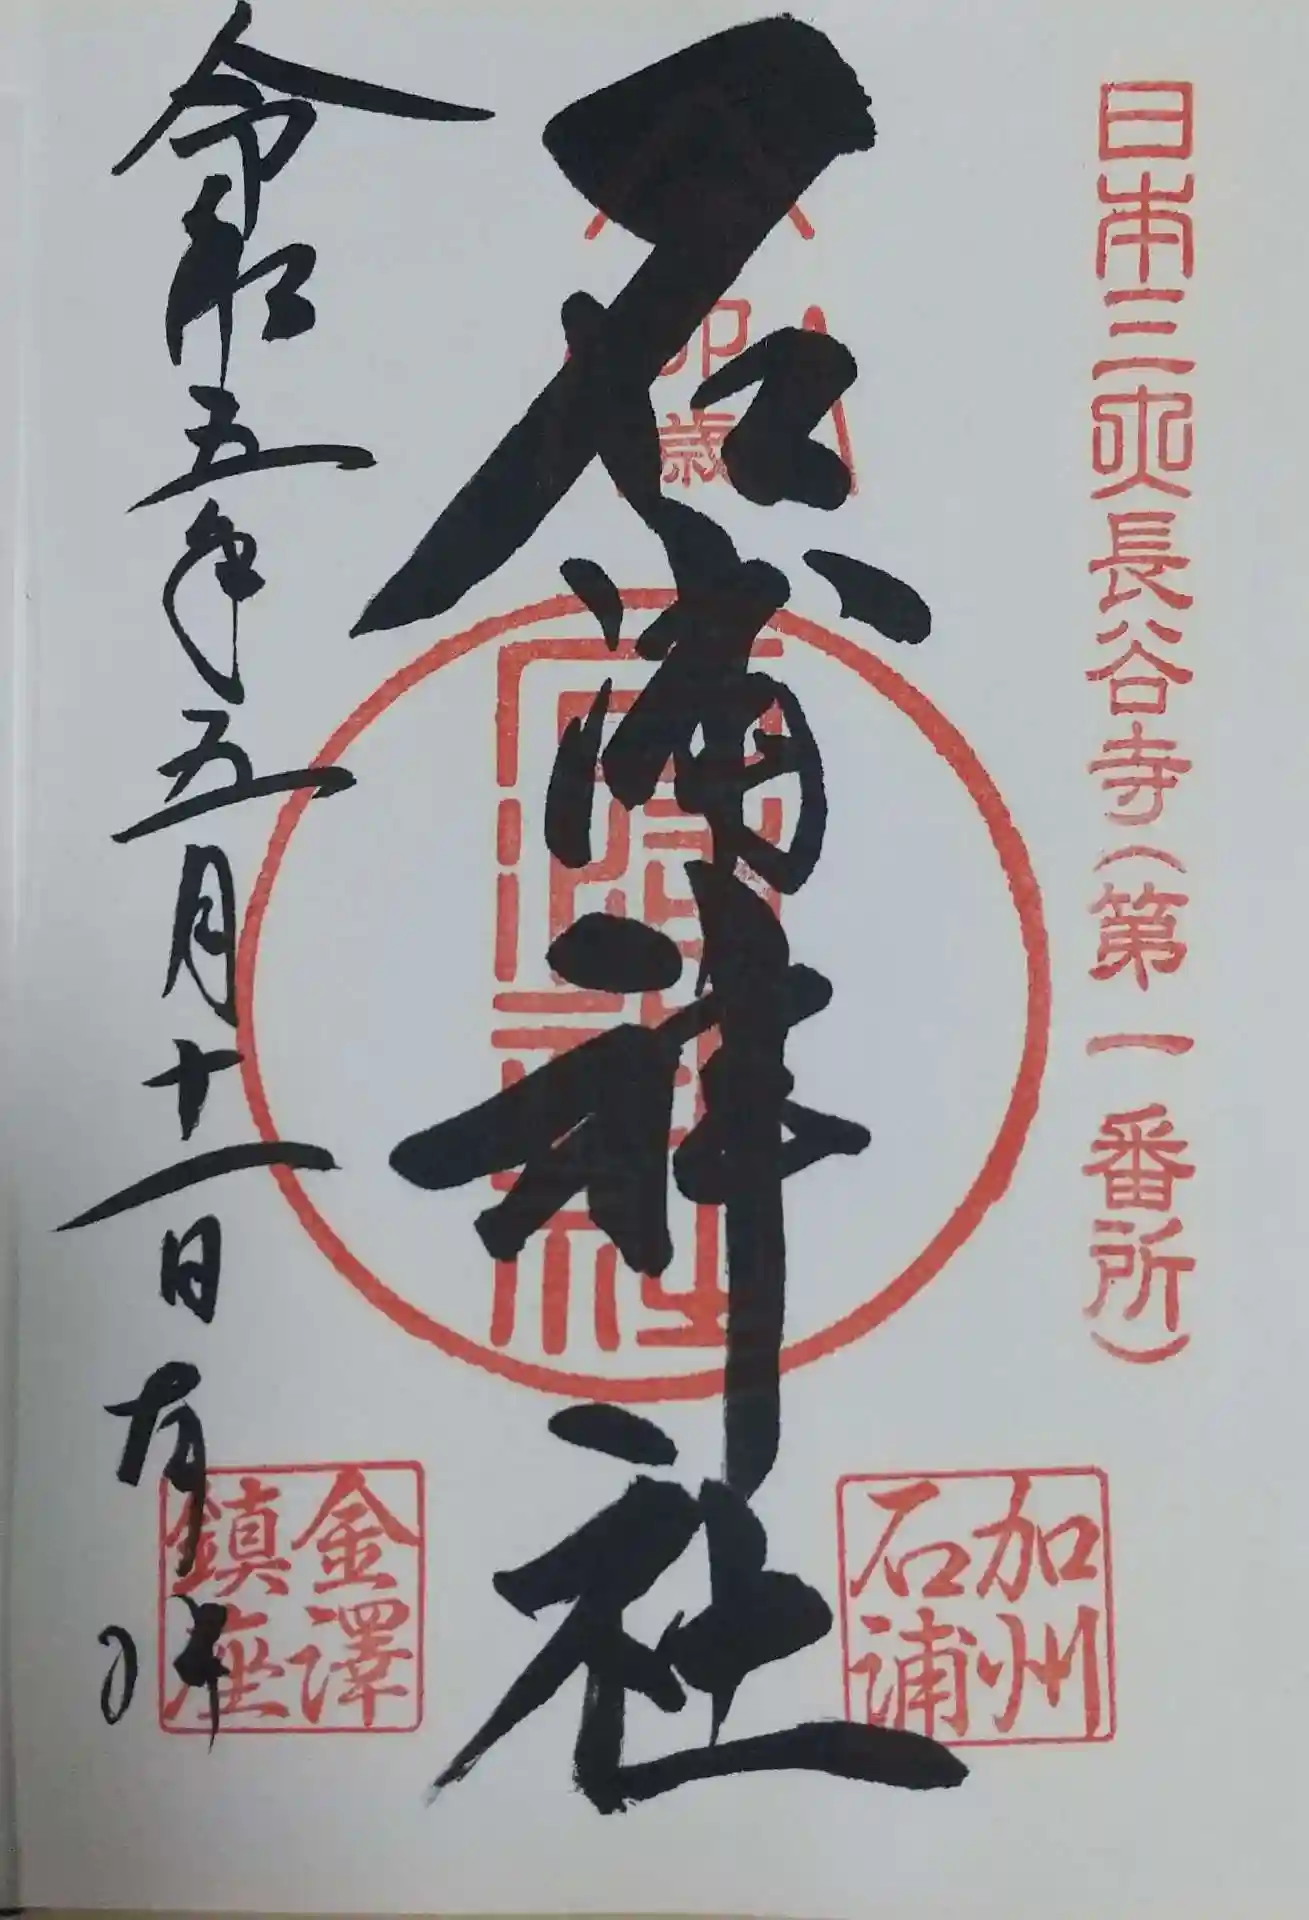 日本三所長谷寺(第一番所)
加州
石浦
卯
歳
石浦神社
金澤
鎮座
令和五年五月十一日